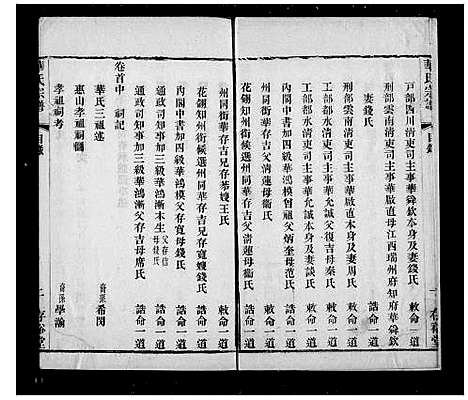 華氏宗譜 目錄 一 存裕堂
戶部四川清吏司主事華舜欽本身及妻錢氏 敕命一道
刑部雲南清吏司主事華啟直母江西瑞州府知府華舜欽
妻錢氏 誥命一道
刑部雲南清吏司主事華啟直本身及妻周氏 敕命一道
工部都水清吏司主事華允誠父復吉母秦氏 敕命一道
工部都水清吏司主事華允誠本身及妻談氏 敕命一道
內閣中書加四級華鴻模曾祖父炳奎母范氏 誥命一道
花翎知州銜候選州同華存吉父清蓮母衞氏 誥命一道
州同銜華存吉兄存恭嫂王氏 敕命一道
花翎知州銜候選州同華存吉兄存寬嫂錢氏 誥命一道
內閣中書加四級華鴻模父存寬母錢氏 誥命一道
通政司知事加三級華鴻漸本生父存恭母錢氏 誥命一道
通政司知事加三級華鴻漸父存吉母席氏 誥命一道
卷首中 祠記
華氏三祖述 裔孫希閔
惠山孝祖祠
孝祖祠考 裔孫學瀚
華氏宗譜 目錄 二 存裕堂